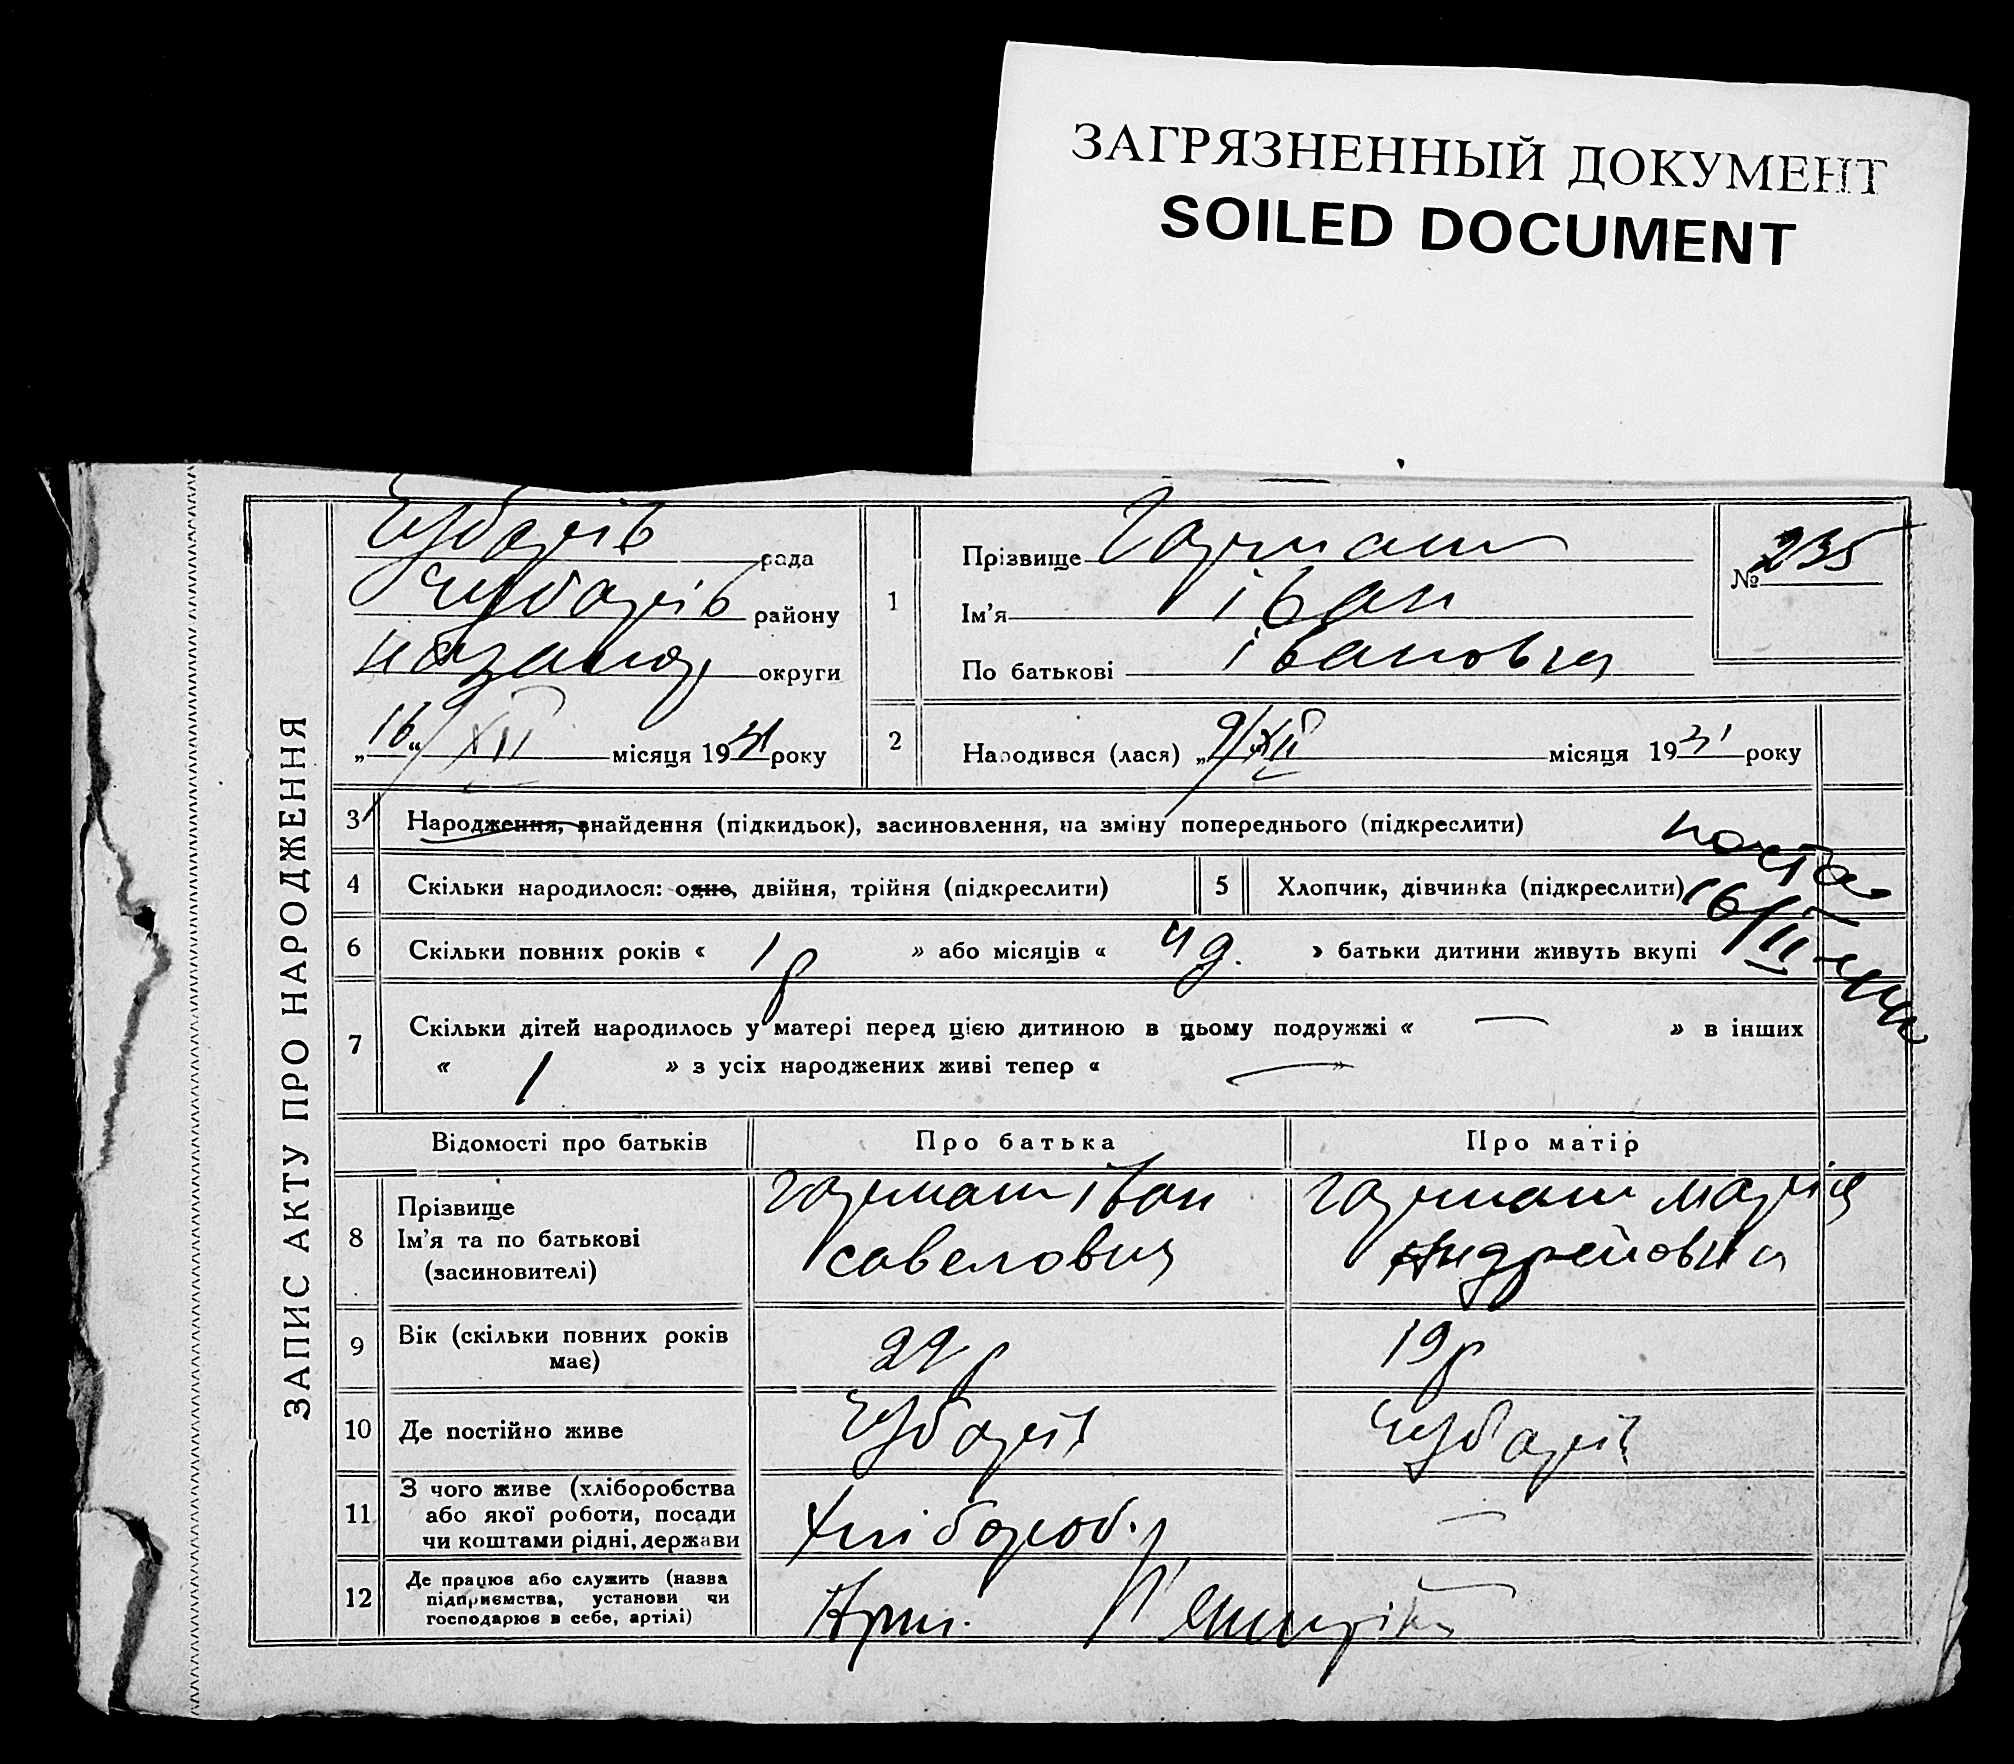 ЗАГРЯЗНЕННЫЙ ДОКУМЕНТ
SOILED DOCUMENT
ЗАПИС АКТУ ПРО НАРОДЖЕННЯ
Чубарів рада
Чубарів району
округи
„16“ XII місяця 1931 року
1
Прізвище
Ім'я Іван
По батькові Іванович
№ 235
2 Народився (лася) „9/XII місяця 1931 року
3 Народження, знайдення (підкидьок), засиновлення, на зміну попереднього (підкреслити)
4 Скільки народилося: одне, двійня, трійня (підкреслити)
5 Хлопчик, дівчинка (підкреслити)
16/II
6 Скільки повних років « 1 р » або місяців « » батьки дитини живуть вкупі
7 Скільки дітей народилось у матері перед цією дитиною в цьому подружжі « — » в інших
« 1 » з усіх народжених живі тепер « — »
Відомості про батьків
Про батька
Про матір
8 Прізвище
Ім'я та по батькові
(засиновителі)
Іван
Савелович
Марія
Андрейовна
9 Вік (скільки повних років
має)
29 р
19 р
10 Де постійно живе
Чубарів
Чубарів
11 З чого живе (хліборобства
або якої роботи, посади
чи коштами рідні, держави
Хлібороб.
—
12 Де працює або служить (назва
підприємства, установи чи
господарює в себе, артілі)
Арт.